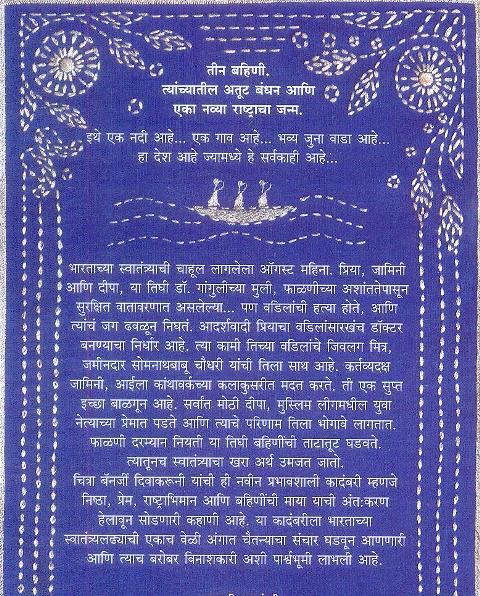 तीन बहिणी.
त्यांच्यातील अतूट बंधन आणि
एका नव्या राष्ट्राचा जन्म.
इथे एक नदी आहे... एक गाव आहे... भव्य जुना वाडा आहे...
हा देश आहे ज्यामध्ये हे सर्वकाही आहे...
भारताच्या स्वातंत्र्याची चाहूल लागलेला ऑगस्ट महिना. प्रिया, जामिनी
आणि दीपा, या तिघी डॉ. गांगुलींच्या मुली, फाळणीच्या अशांततेपासून
सुरक्षित वातावरणात असलेल्या... पण वडिलांची हत्या होते, आणि
त्यांचं जग ढवळून निघतं. आदर्शवादी प्रियाचा वडिलांसारखंच डॉक्टर
बनण्याचा निर्धार आहे. त्या कामी तिच्या वडिलांचे जिवलग मित्र,
जमीनदार सोमनाथबाबू चौधरी यांची तिला साथ आहे. कर्तव्यदक्ष
जामिनी, आईला कांथावर्कच्या कलाकुसरीत मदत करते. ती एक सुप्त
इच्छा बाळगून आहे. सर्वांत मोठी दीपा, मुस्लिम लीगमधील युवा
नेत्याच्या प्रेमात पडते आणि त्याचे परिणाम तिला भोगावे लागतात.
फाळणी दरम्यान नियती या तिघी बहिणींची ताटातूट घडवते.
त्यातूनच स्वातंत्र्याचा खरा अर्थ उमजत जातो.
चित्रा बॅनर्जी दिवाकरूनी यांची ही नवीन प्रभावशाली कादंबरी म्हणजे
निष्ठा, प्रेम, राष्ट्राभिमान आणि बहिणींची माया याची अंत:करण
हेलावून सोडणारी कहाणी आहे. या कादंबरीला भारताच्या
स्वातंत्र्यलढ्याची एकाच वेळी अंगात चैतन्याचा संचार घडवून आणणारी
आणि त्याच बरोबर विनाशकारी अशी पार्श्वभूमी लाभली आहे.